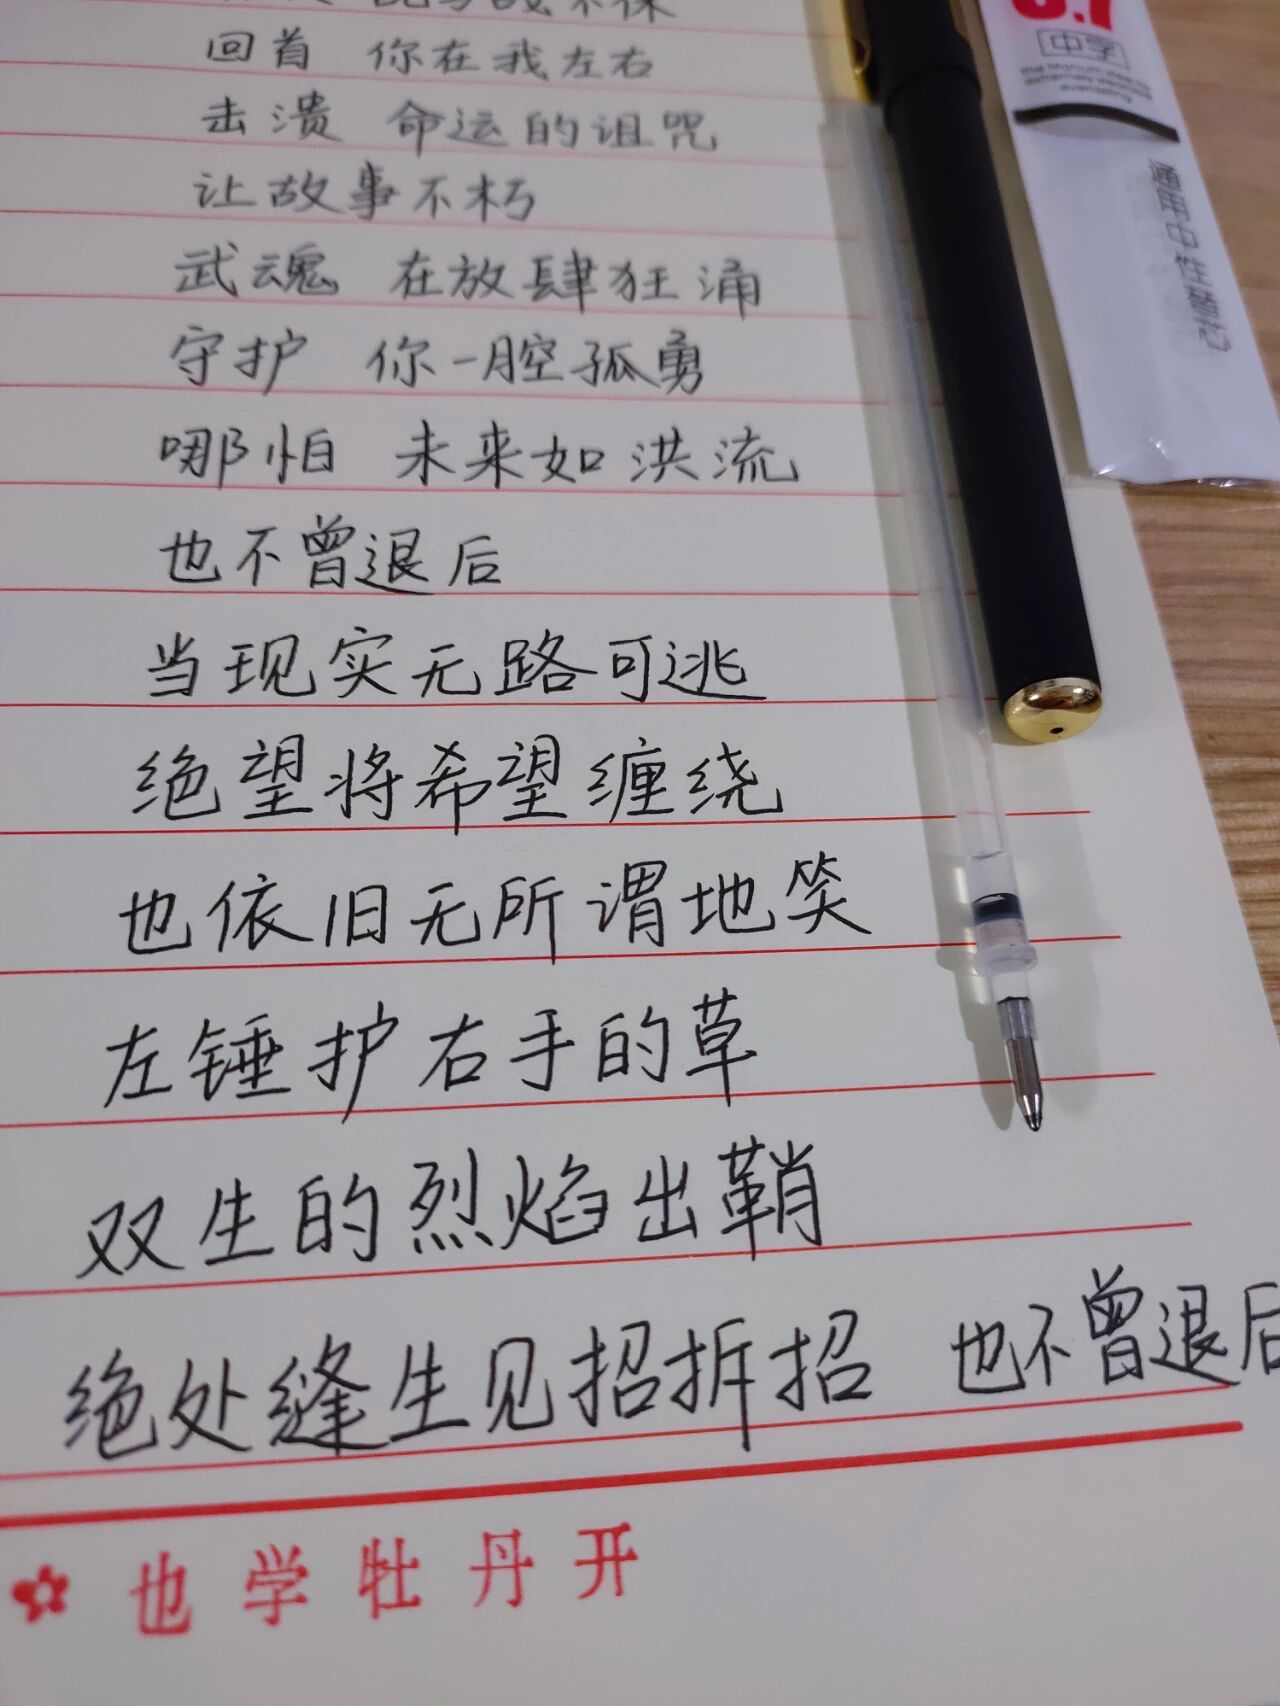 回首 你在我左右
击溃 命运的诅咒
让故事不朽
武魂 在放肆狂涌
守护 你一腔孤勇
哪怕 未来如洪流
也不曾退后
当现实无路可逃
绝望将希望缠绕
也依旧无所谓地笑
左锤护右手的草
双生的烈焰出鞘
绝处缝生见招拆招 也不曾退后
也学牡丹开
中字
通用中性替芯